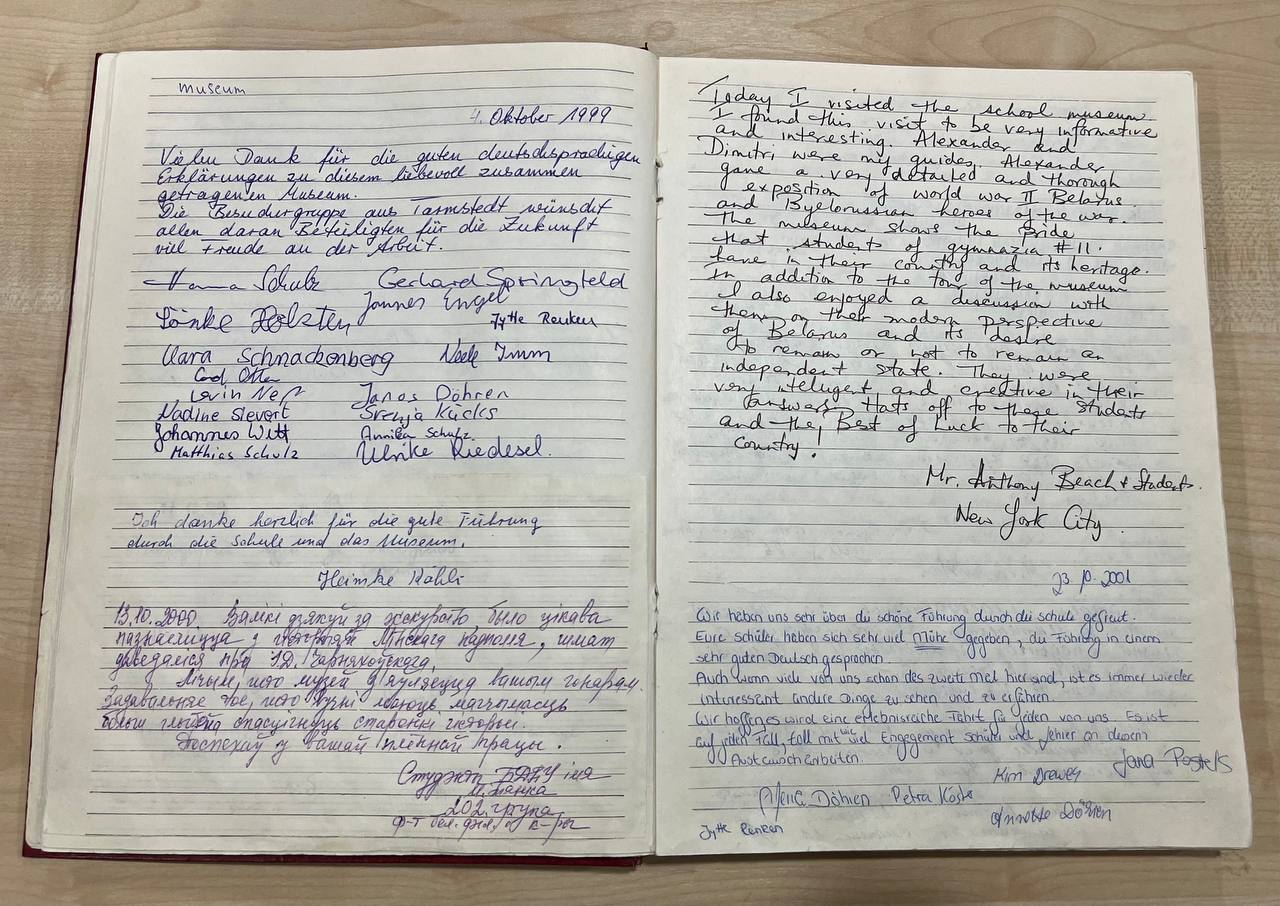 museum
4. Oktober 1999
Vielen Dank für die guten deutschsprachigen
Erklärungen zu diesem liebevoll zusammen
getragenen Museum.
Die Besuchergruppe aus Tarmstedt wünscht
allen daran Beteiligten für die Zukunft
viel Freude an der Arbeit.
Schulz Gerhard Springfeld
Jannes Engel
Sönke Holsten Jytte Renken
Clara Schnackenberg Neele Imm
Otten
Janos Döhren
Nadine Sievert Svenja Kücks
Johannes Witt Annika Schulz
Matthias Schulz Ulrike Riedesel.
Ich danke herzlich für die gute Führung
durch die Schule und das Museum.
Heimke
13.10.2000. Вялікі дзякуй за экскурсію, было цікава
пазнаёміцца з гісторыяй Мінскага падполля, шмат
даведаліся пра І.Д. Чарняхоўскага.
Лічым, што музей з'яўляецца вашым гонарам.
Задавальняе тое, што вучні маюць магчымасць
больш глыбей спасцігнуць старонкі гісторыі.
Поспехаў у вашай плённай працы.
Студэнты БДПУ імя
М. Танка
202 група
ф-т бел. філ. і к-ры
Today I visited the school museum.
I found this visit to be very informative
and interesting. Alexander and
Dimitri were my guides. Alexander
gave a very detailed and thorough
exposition of world war II Belarus
and Byelorussian heroes of the war.
The museum shows the pride
that students of gymnazia #11
have in their country and its heritage.
In addition to the tour of the museum
I also enjoyed a discussion with
them on their modern perspective
of Belarus and its desire
to remain or not to remain an
independent state. They were
very intelugent and creative in their
answers. Hats off to these students
and the Best of Luck to their
country!
Mr. Anthony Beach + Students.
New York City
23.10.2001
Wir haben uns sehr über die schöne Führung durch die Schule gefreut.
Eure Schüler haben sich sehr viel Mühe gegeben, die Führung in einem
sehr guten Deutsch gesprochen.
Auch wenn viele von uns schon das zweite Mal hier sind, ist es immer wieder
interessant andere Dinge zu sehen und zu erfahren.
Wir hoffen es wird eine erlebnisreiche Fahrt für jeden von uns. Es ist
auf jeden Fall toll mit wie viel Engagement Schüler und Lehrer an diesem
Austausch arbeiten.
Jana Postels
Kim Drewes
Döhren Petra Köster
Annette Döhren
Jytte Renken